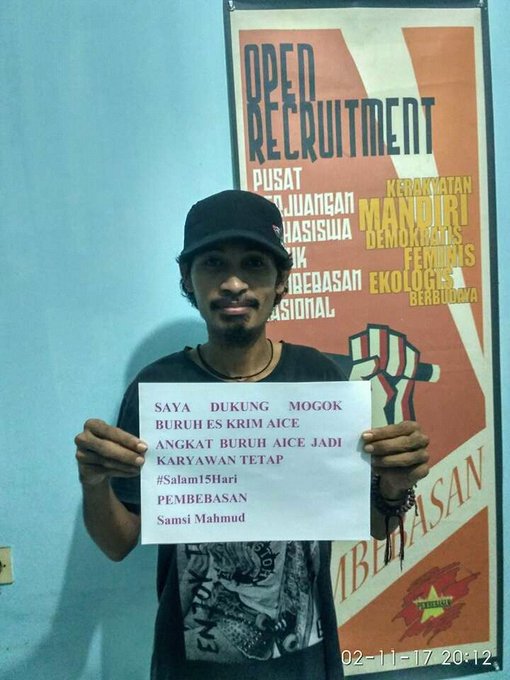 OPEN
RECRUITMENT
PUSAT
PERJUANGAN
MAHASISWA
NASIONAL
KERAKYATAN
MANDIRI
DEMOKRATIS
FEMINIS
EKOLOGIS
BERBUDAYA
SAYA DUKUNG MOGOK
BURUH ES KRIM AICE
ANGKAT BURUH AICE JADI
KARYAWAN TETAP
#Salam15Hari
PEMBEBASAN
Samsi Mahmud
MBEBASAN
02-11-17 20:12